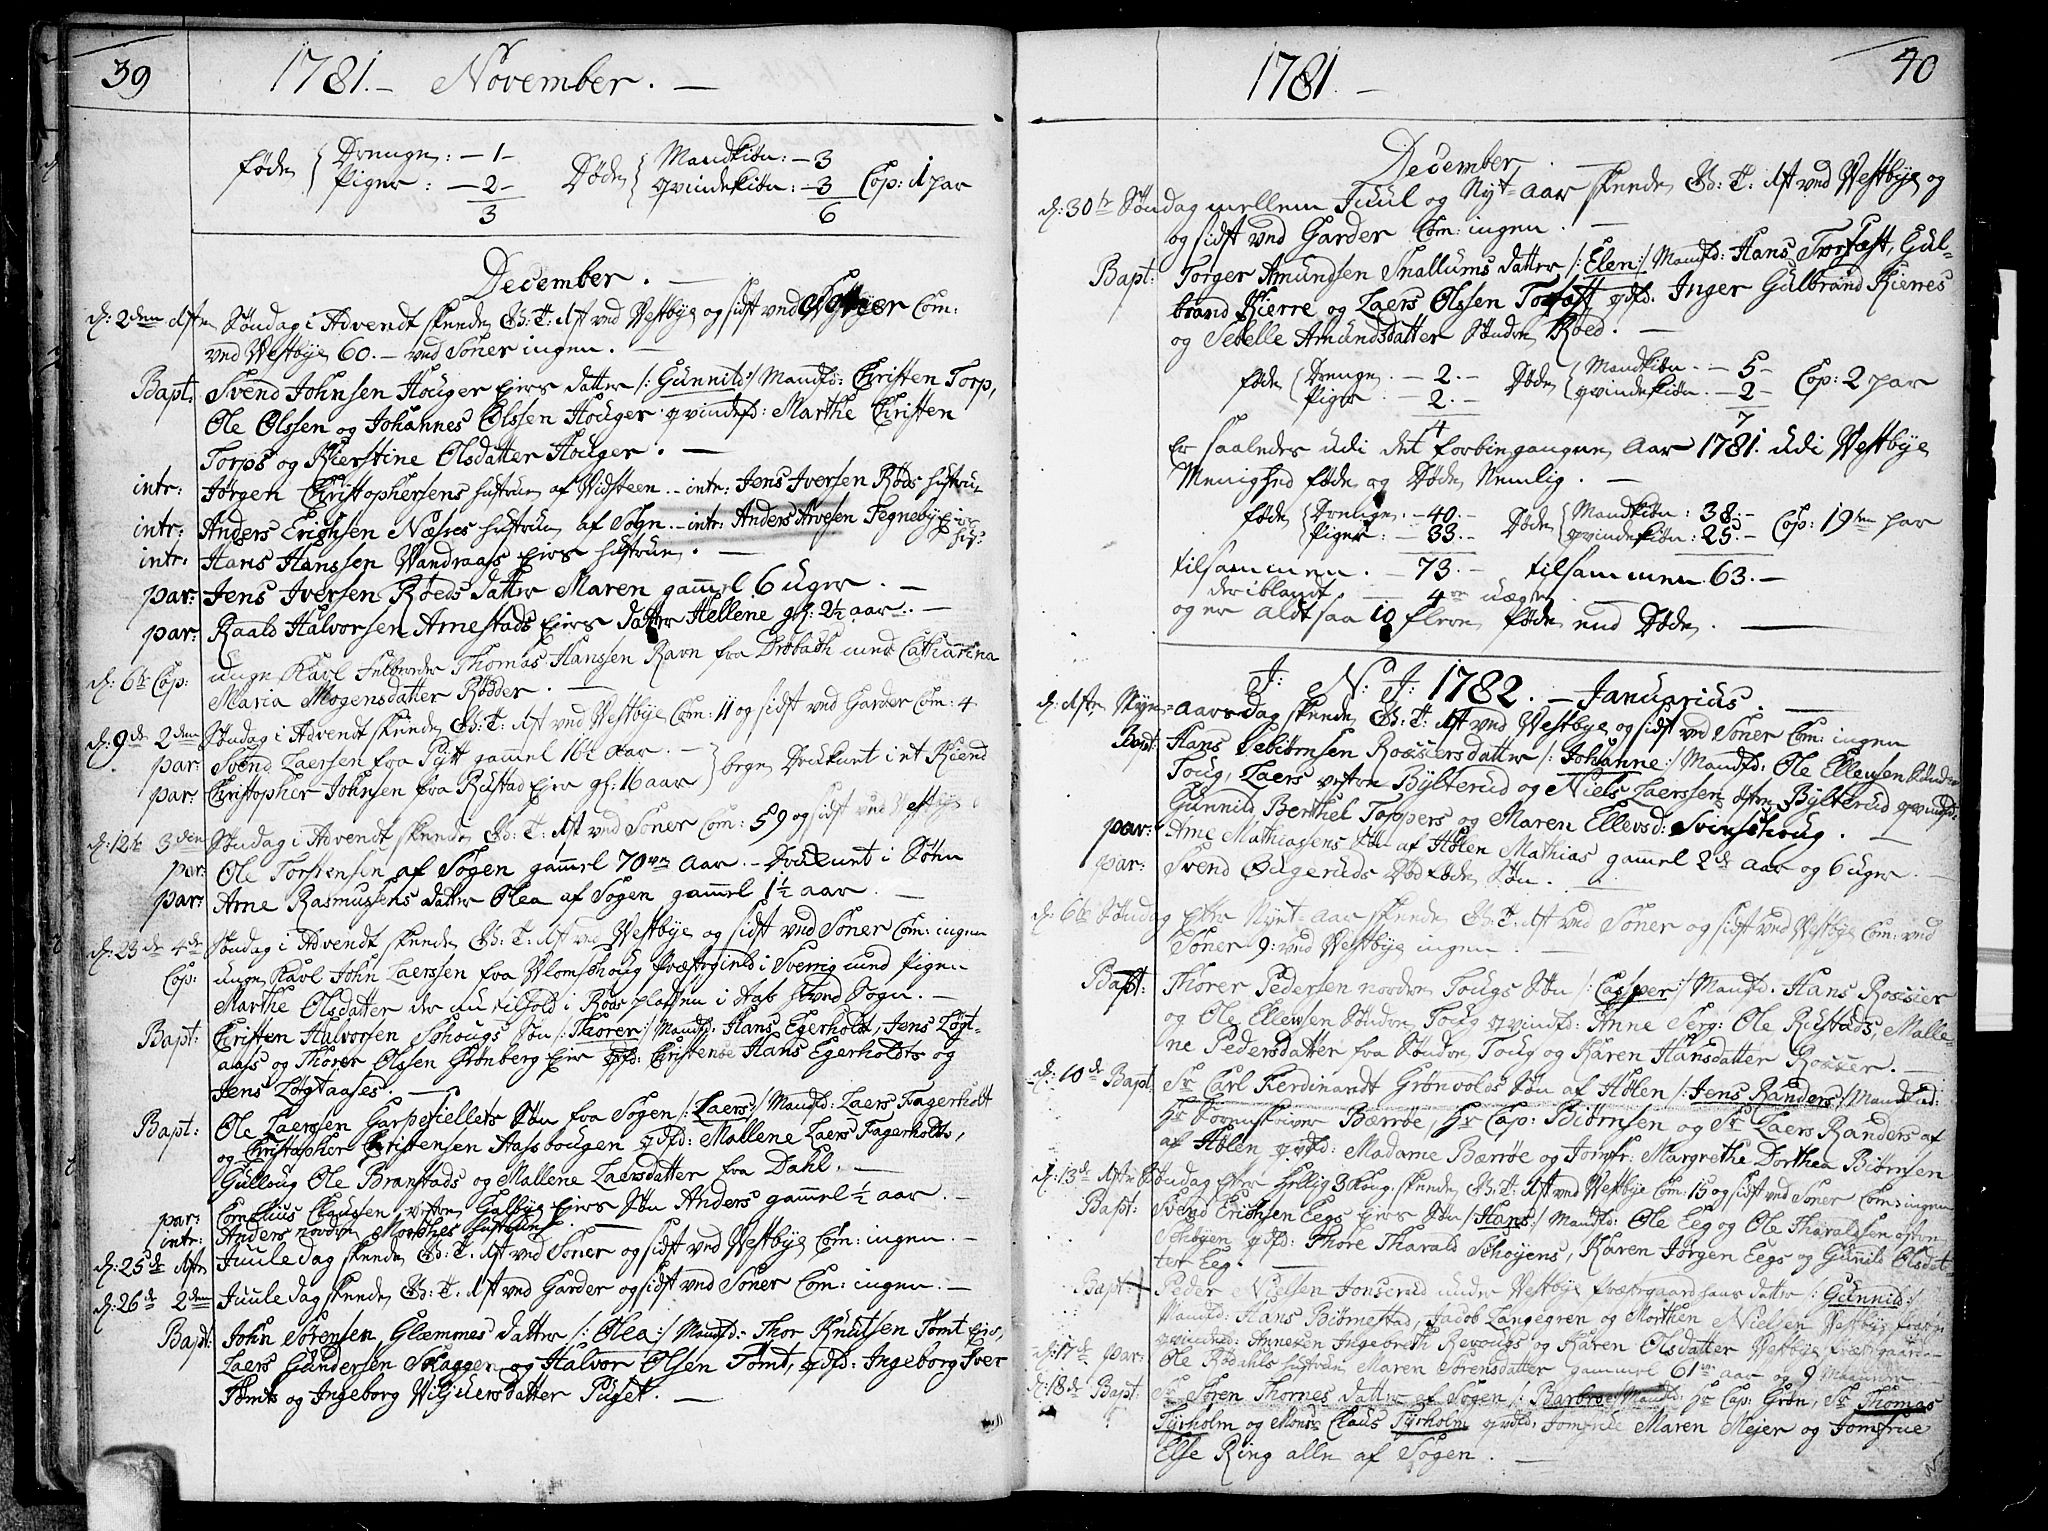 39
1781. — November. —
føde { Drenge: — 1 — Døde { Mandkiøn: — 3
Piger: — 2 — Qvindekiøn: — 3 Cop: 1 par
3 6
December. —
d: 2den 1ste Søndag i Advendt skeende G: T: 1st ved Vestbye og sidst ved Soner Com:
ved Vestbye 60. — ved Soner ingen. —
Bapt: Svend Johnsen Houger Eiers datter /: Gunnild :/ Mandfd: Christen Torp,
Ole Olssen og Johannes Olssen Houger qvindefd: Marthe Christen
Torps og Kierstine Olsdatter Houger. —
intr: Jørgen Christophersens hustrue af Vidsteen. — intr: Jens Iversen Røds hustrue
intr: Anders Erichsen Næsses hustrue af Sogn. — intr: Anders Arvesen Fegnebye Eiers
hus:
intr: Hans Hanssen Wandraas Eiers hustrue. —
par: Jens Iversen Røeds datter Maren gammel 6 uger. —
par: Raald Halvorsen Amestads Eiers datter Hellene gl: 2½ aar. —
d: 6te Cop: unge Karl Thomas Hanssen Ravn fra Drøbach med Catharina
Maria Mogensdatter Rødder. —
d: 9de 2den Søndag i Advendt skeende G: T: 1st ved Vestbye Com: 11 og sidst ved Garder Com: 4
par: Svend Laersen fra Pytt gammel 16 aar. — } begge Druknet i et Kiend
par: Christopher Johnsen fra Rustad Eier gl: 16 aar
d: 3den Søndag i Advendt skeende G: T: 1st ved Soner Com: 59 og sidst ved Vestbye
par: Ole Torstensen af Sogen gammel 70ve aar. — Druknet i Søen
par: Arne Rasmusens datter Olea af Sogen gammel 1½ aar. —
d: 23de 4de Søndag i Advendt skeende G: T: 1st ved Vestbye og sidst ved Soner Com: ingen
Cop: unge Karl John Laerssen fra Blomshoug Præstegield i Sverrig med Pigen
Marthe Olsdatter der nu tilhold i Røds pladsen i Aas hoved Sogn. —
Bapt: Christen Halvorsen Schougs Søn /: Thorer :/ Mandfd: Hans Egerholdt, Jens Løgt-
aass og Thorer Olssen Grønberg Eier qdfd: Christense Hans Egerholdts og
Jens Løgtaases. —
Bapt: Ole Laerssen Garpefiellets Søn fra Sogen /: Laers :/ Mandfd: Laers Fagerholt
og Christopher Christensen Aassbougen qdfd: Mallene Laers Fagerholts,
Gulloug Ole Branstads og Mallene Laersdatter fra Dahl. —
par: Cornelius Clausen vestre Galbye Eiers Søn Anders gammel ½ aar. —
intr: Anders nordre Mørches hustrue. —
d: 25de 1ste Juule dag skeende G: T: 1st ved Soner og sidst ved Vestbye Com: ingen. —
d: 26de 2den Juule dag skeende G: T: 1st ved Garder og sidst ved Soner Com: ingen. —
Bapt: John Sørensen Glæmmes datter /: Olea :/ Mandfd: Thor Knutsen Tømt Eier,
Laers Gundersen Skaggen og Halvor Olsen Tømt, qdfd: Ingeborg Sver
Tømts og Ingeborg Viljuersdatter Puget. —
1781. — 40
December. —
d: 30te Søndag mellem Juul og Nyt-Aar skeende G: T: 1st ved Vestbye og
og sidst ved Garder Com: ingen. —
Bapt: Torger Amundsen Snallums datter /: Elen :/ Mandfd: Hans Torfæst, Gul-
brand Kierre og Laers Olssen Torfæst qdfd. Inger Gulbrand Kierres
og Sebelle Amundsdatter Søndre Røed. —
føde { Drenge. — 2. — Døde { Mandkiøn. — 5 — Cop: 2 par
Piger. — 2. — qvindekiøn. — 2 —
4 7
Er saaledes udi det forbingangne Aar 1781. udi Vestbye
Menighed føde og Døde Nemlig. —
føde { Drenge. — 40. — Døde { Mandkiøn: 38. — Cop: 19ten par
Piger: — 33. — qvindekiøn: 25. —
tilsammen. — 73. — tilsammen. 63. —
deriblandt. — 4re uægte. —
og er altsaa 10 flere føde end Døde. —
J: N: J: 1782. — Januarius. —
d: 1ste Nyn-aars dag skeende G: T: 1st ved Vestbye og sidst ved Soner Com: ingen
Bapt: Hans Sebiørnsen Rosiers datter /: Johanne :/ Mandfd: Ole Ellensen Søndre
Toug, Laers vestre Bylterud og Niels Laerssen østre Bylterud qvindfd:
Gunnild Berthel Toppers og Maren Ellevsd: Svinshoug. —
par: Arne Mathiasens Søn af Hølen Mathias gammel 2de Aar og 6 uger. —
par: Svend Øugeruds Død føde Søn. —
d: 6te Søndag efter Nyt-aar skeende G: T: 1st ved Soner og sidst ved Vestbye Com: ved
Soner 9: ved Vestbye ingen. —
Bapt: Thorer Pedersen nordre Tougs Søn /: Casper :/ Mandfd. Hans Rosier
og Ole Ellensen Søndre Toug qvindfd: Anne Serg: Ole Rustads, Malle-
ne Pedersdatter fra Søndre Toug og Karen Hansdatter Rosier. —
d: 10de Bapt: Sr Carl Ferdinandt Grønvolds Søn af Hølen /: Jens Randers :/ Mandfad:
Hr Sorenskriver Bærrøe, Hr Cap: Biørnsen og Sr Laers Randers af
af Hølen qvdfd: Madame Bærrøe og Jomfr: Margrethe Dorthea Biørnsen
d: 13de 1ste Søndag efter Hellig 3 Kong: skeende G: T: 1st ved Vestbye Com: 15 og sidst ved Soner Com: ingen
Bapt: Svend Erichsen Eegs Eiers Søn /: Hans :/ Mandfd: Ole Eeg og Ole Tharaldsen østre
Schøyen qdfd: Thore Tharald Schøyens, Karen Jørgen Eegs og Gunnild Olsdat-
ter Eeg. —
Bapt: Peder Nielsen Jonserud under Vestbye Præstgaard hans datter /: Gunnild :/
Mandfd: Hans Biørnestad, Jacob Langegren og Morthen Nielsen Vestbye
qvindefd: Annexen Ingebreth Revougs og Karen Olsdatter Vestbye Præstgaard. —
d: 17de par: Ole Rødahls hustrue Maren Sørensdatter gammel 61 aar og 9 Maaneder
d: 18de Bapt: Sr Søren Thornes datter af Sogen /: Barbroe :/ Mandfd: Hr Cap: Grøn, Sr Thomas
Tyrholm og Monsr Claus Tyrholm qvdfd: Jomfrue Maren Mejer og Jomfrue
Else Ring alle af Sogen. —